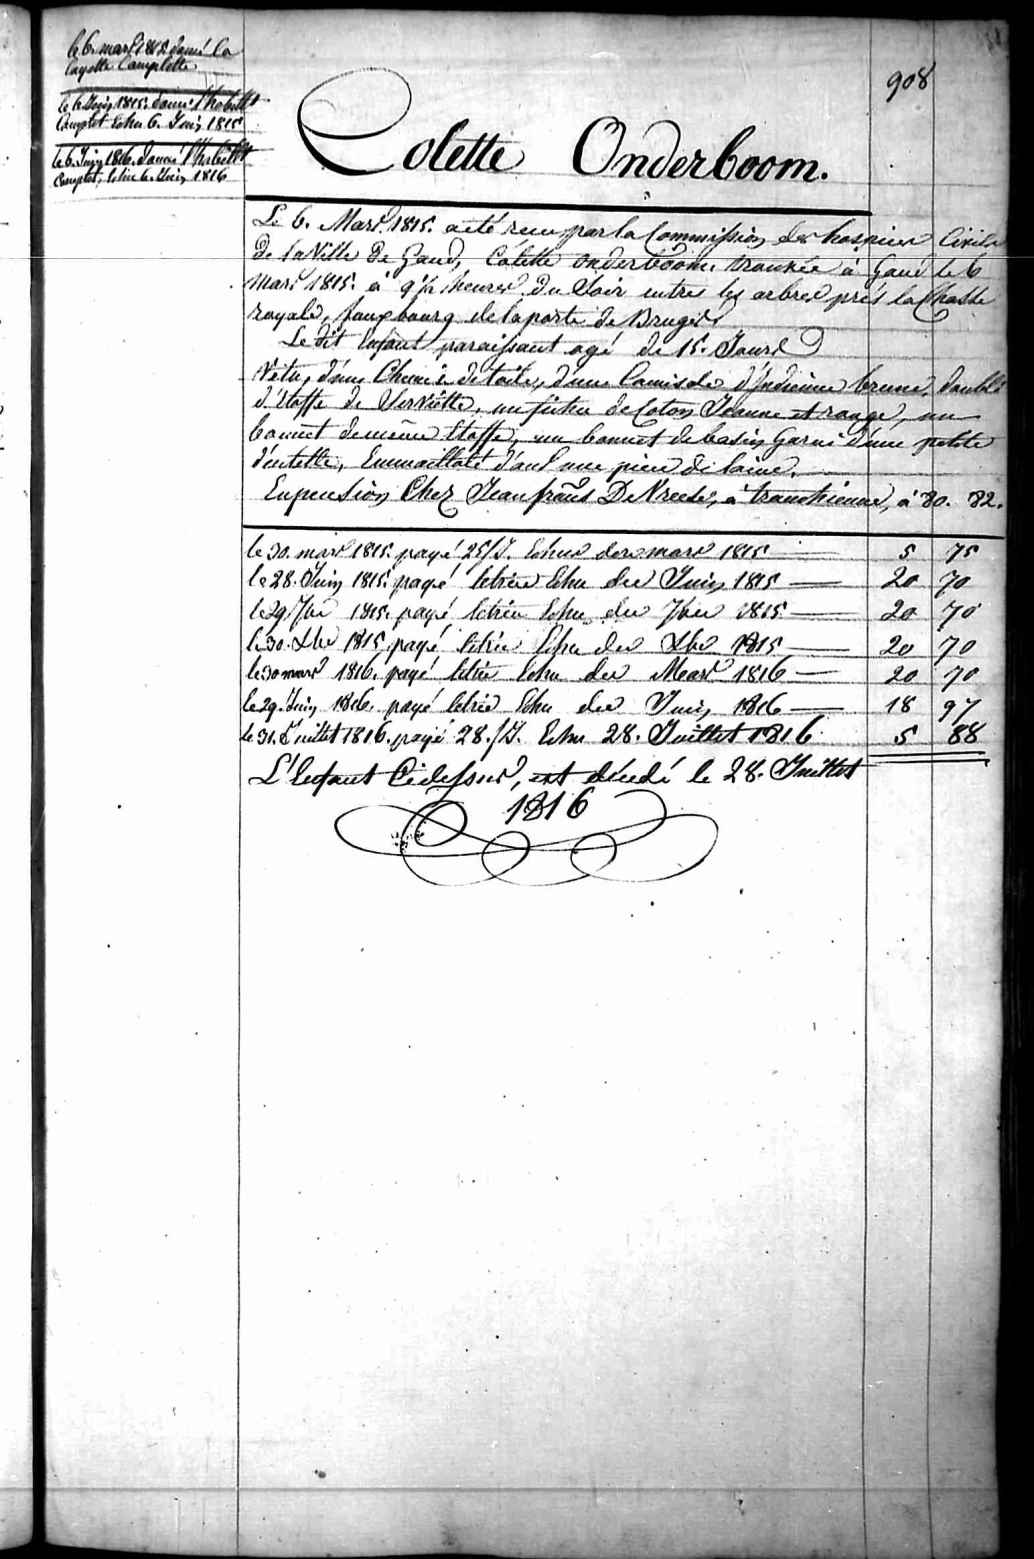 le 6. mars 1815 donné la
layette Complette
le 6 Juin 1815. donné l'habillt
Complet Echu 6. Juin 1815
le 6. Juin 1816. donné l'habillt
Complet, Echu 6. Juin 1816
908
Colette Onderboom.
Le 6. Mars 1815. a été reçu par la Commission des hospices Civils
de la Ville de Gand, Colette onderboom. trouvée à Gand le 6
mars 1815. à 9½ heures du Soir entre les arbres près la Chasse
royale, fauxbourg de la porte de Bruges
Le dit Enfant paraissant agé de 15. Jours
Vetu, d'une Chemise de toile, d'une Camisole d'Indienne brune, doublé
d'Etoffe de Serviette, un fichu de Coton Jeaune et rouge, un
bonnet de même Etoffe, un bonnet de basin Garni d'une petite
dentelle, Emmailloté dans une piece de laine.
En pension Chez Jean frans De Vreese, à tronchienne, à 80. 82.
le 30. mars 1815. payé 25/J. Echus der mars 1815 5 75
le 28. Juin 1815. payé letrie Echu der Juin 1815 20 70
le 29. 7bre 1815. payé letrie Echu der 7bre 1815 20 70
le 30. Xbre 1815. payé letrie Echu der Xbre 1815 20 70
le 30 mars 1816. payé letrie Echu der Mars 1816 20 70
le 29. Juin 1816. payé letrie Echu der Juin 1816 18 97
le 31. Juillet 1816. payé 28./J. Echu 28. Juillet 1816 5 88
L'Enfant Cidessus, est décédé le 28. Juillet
1816